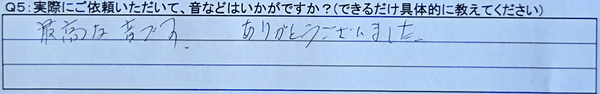 Q5：実際にご依頼いただいて、音などはいかがですか？(できるだけ具体的に教えてください)
最高な音です。 ありがとうございました。